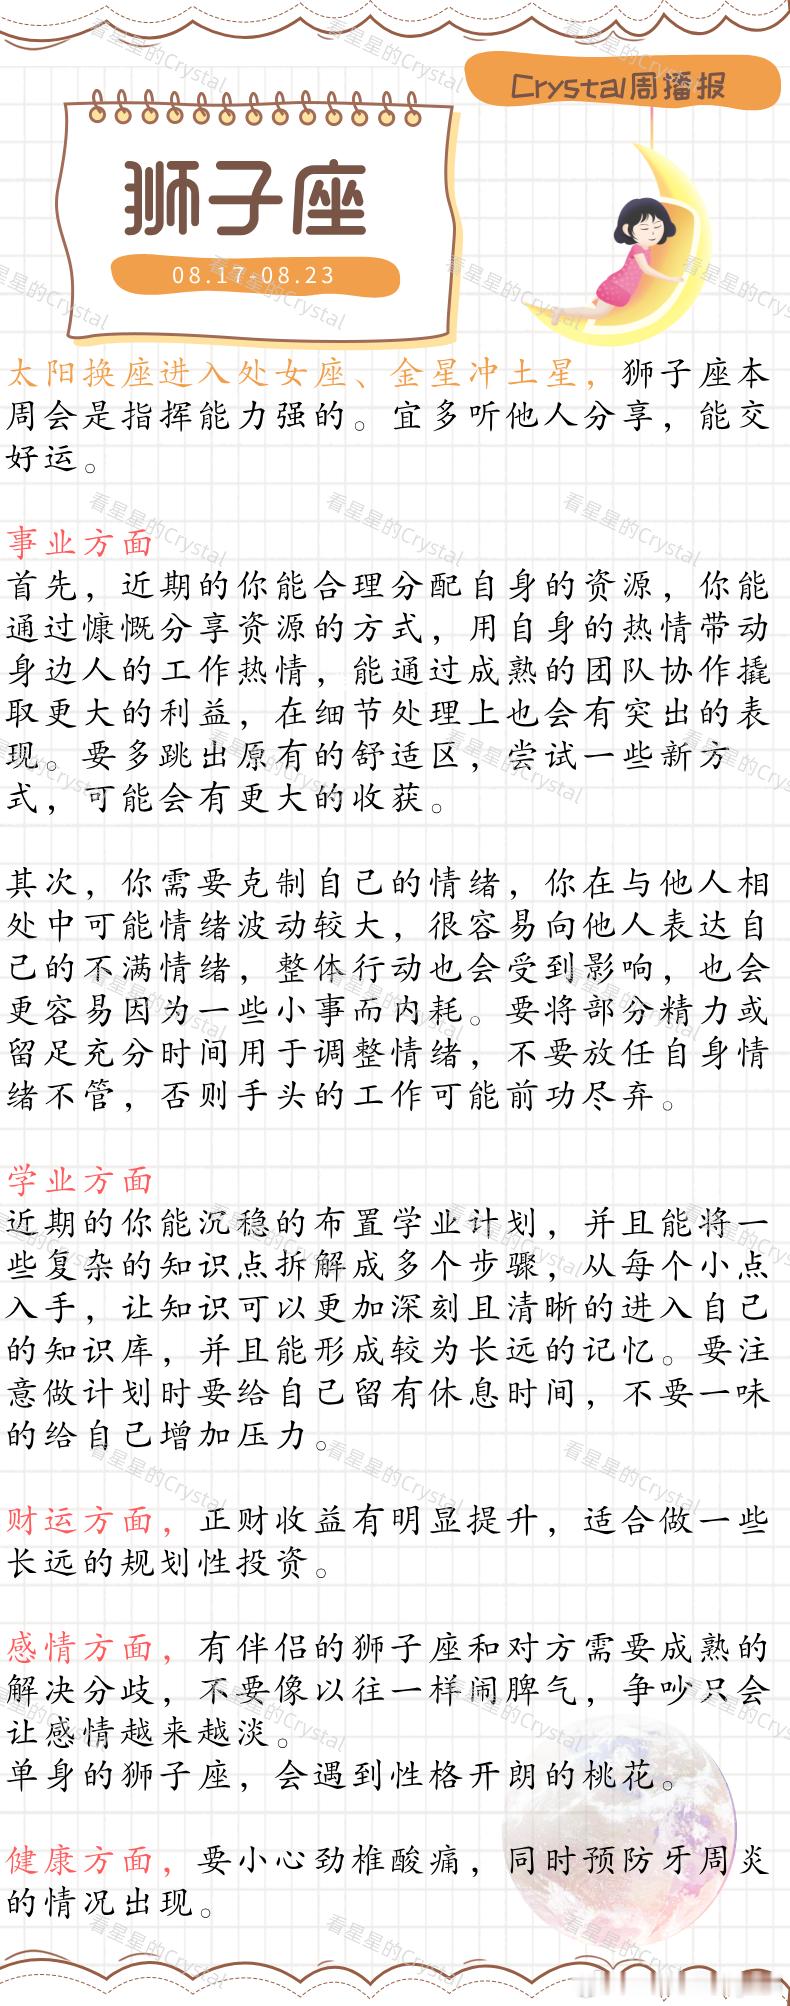 Crystal周播报
狮子座
08.17-08.23
太阳换座进入处女座、金星冲土星，狮子座本
周会是指挥能力强的。宜多听他人分享，能交
好运。
事业方面
首先，近期的你能合理分配自身的资源，你能
通过慷慨分享资源的方式，用自身的热情带动
身边人的工作热情，能通过成熟的团队协作撬
取更大的利益，在细节处理上也会有突出的表
现。要多跳出原有的舒适区，尝试一些新方
式，可能会有更大的收获。
其次，你需要克制自己的情绪，你在与他人相
处中可能情绪波动较大，很容易向他人表达自
己的不满情绪，整体行动也会受到影响，也会
更容易因为一些小事而内耗。要将部分精力或
留足充分时间用于调整情绪，不要放任自身情
绪不管，否则手头的工作可能前功尽弃。
学业方面
近期的你能沉稳的布置学业计划，并且能将一
些复杂的知识点拆解成多个步骤，从每个小点
入手，让知识可以更加深刻且清晰的进入自己
的知识库，并且能形成较为长远的记忆。要注
意做计划时要给自己留有休息时间，不要一味
的给自己增加压力。
财运方面，正财收益有明显提升，适合做一些
长远的规划性投资。
感情方面，有伴侣的狮子座和对方需要成熟的
解决分歧，不要像以往一样闹脾气，争吵只会
让感情越来越淡。
单身的狮子座，会遇到性格开朗的桃花。
健康方面，要小心劲椎酸痛，同时预防牙周炎
的情况出现。
看星星的Crystal